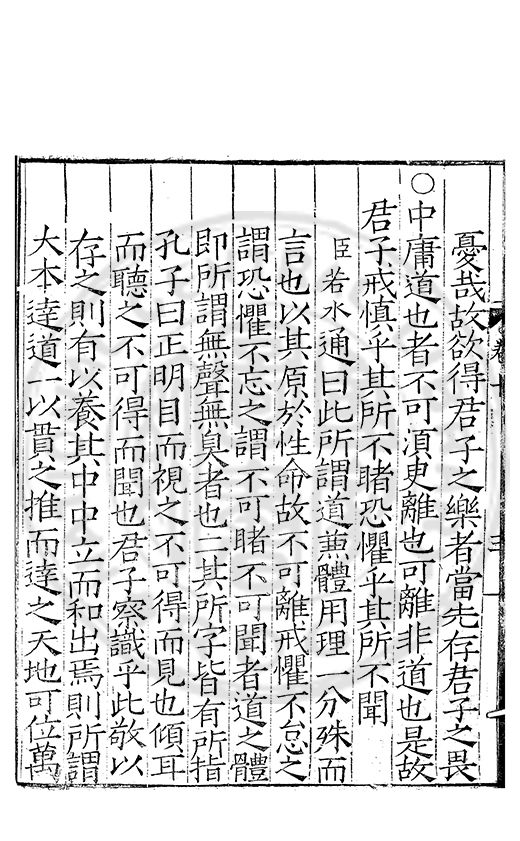 憂哉故欲得君子之樂者當先存君子之畏
○中庸道也者不可湏臾離也可離非道也是故
君子戒慎乎其所不睹恐懼乎其所不聞
臣若水通曰此所謂道蕪體用理一分殊而
言也以其原於性命故不可離戒懼不怠之
謂恐懼不忘之謂不可睹不可聞者道之體
即所謂無聲無臭者也二其所字皆有所指
孔子曰正明目而視之不可得而見也傾耳
而聽之不可得而聞也君子察識乎此敬以
存之則有以養其中中立而和出焉則所謂
大本達道一以貫之推而達之天地可位萬